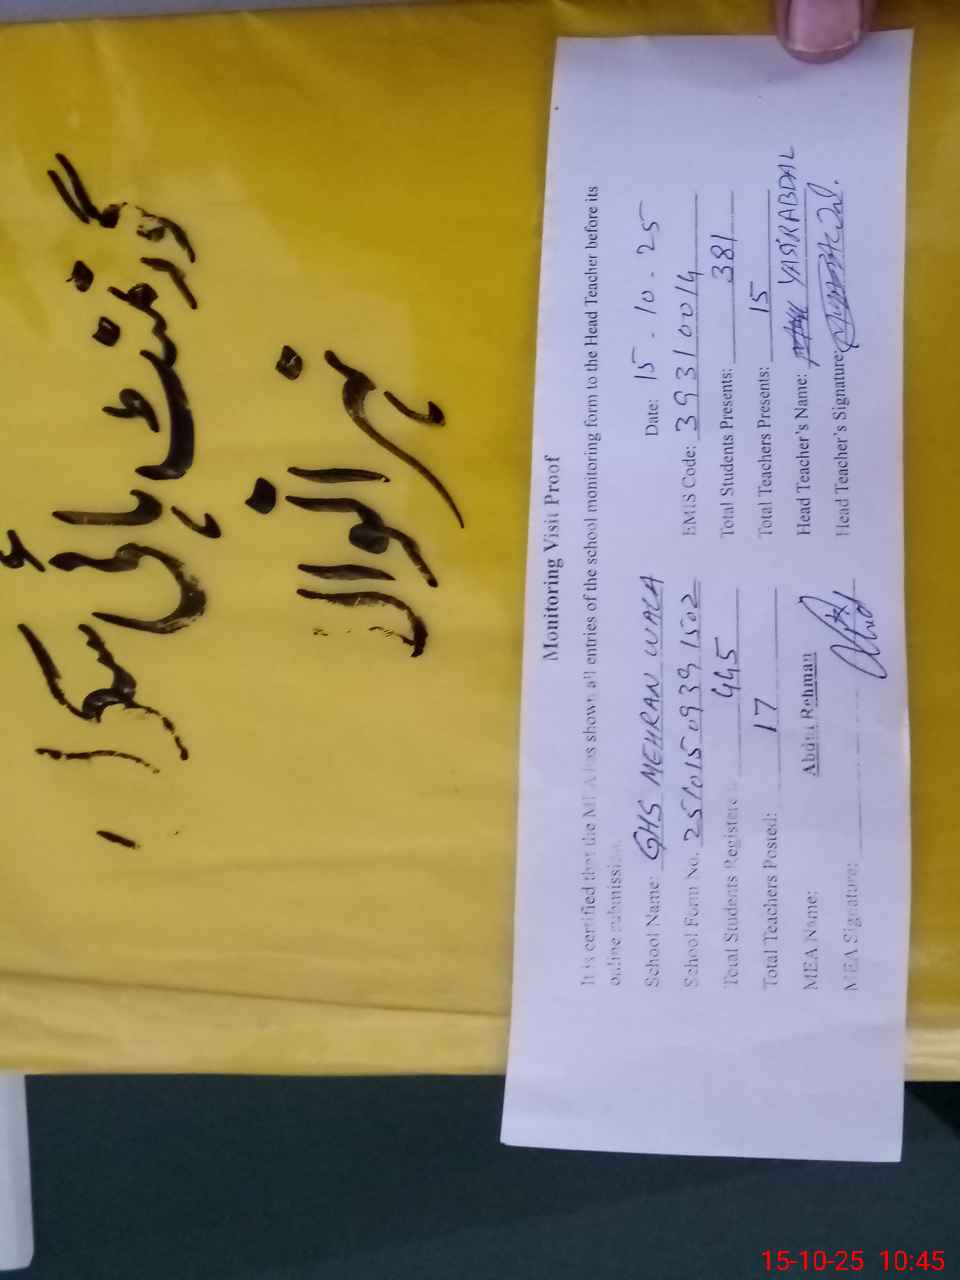 گورنمنٹ ہائی سکول
مہرانوالا
Monitoring Visit Proof
It is certified that the MEA has shown all entries of the school monitoring form to the Head Teacher before its
online submission.
School Name: GHS MEHRAN WALA Date: 15.10.25
School Form No. 25101509391502 EMIS Code: 39310014
Total Students Registered: 445 Total Students Presents: 381
Total Teachers Posted: 17 Total Teachers Presents: 15
MEA Name: Abdul Rehman Head Teacher's Name: YASIR ABDAL
MEA Signature: Head Teacher's Signature:
15-10-25 10:45